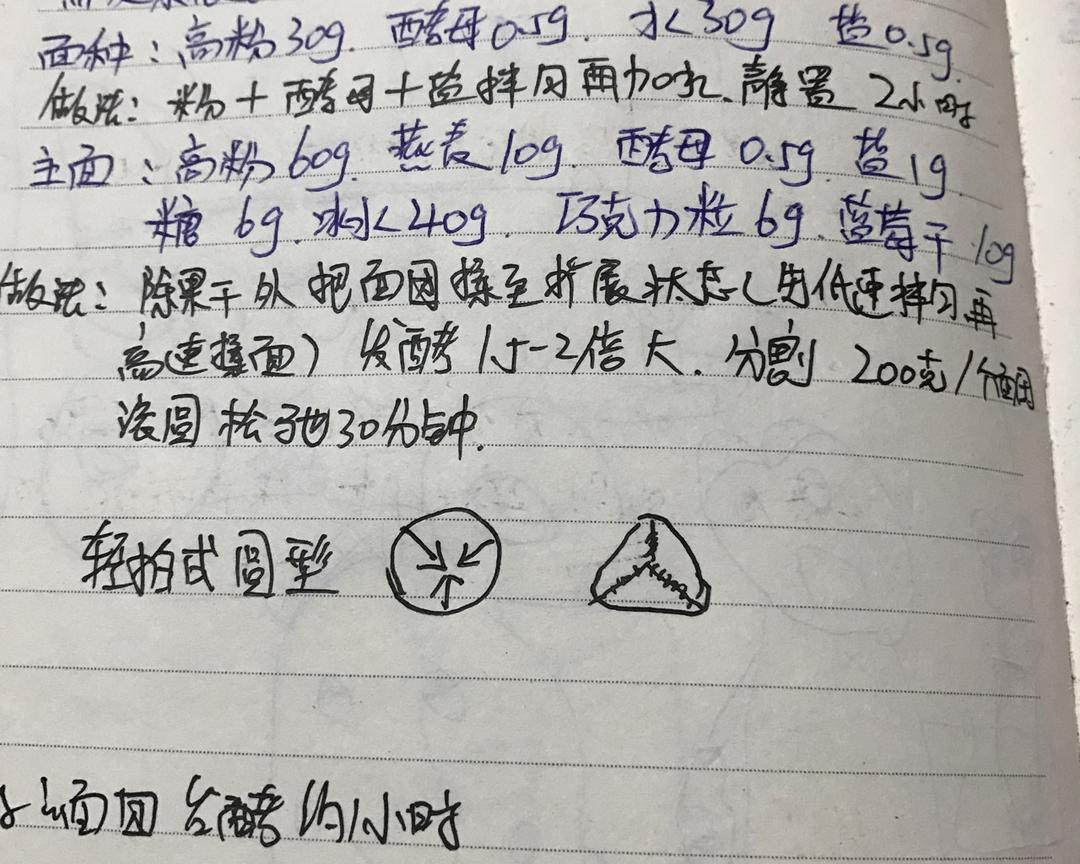 面种：高粉30g. 酵母0.5g. 水30g 盐0.5g.
做法：粉＋酵母＋盐拌匀再加水.静置 2小时
主面：高粉60g. 燕麦10g. 酵母 0.5g. 盐1g
糖 6g. 冰水40g. 巧克力粒 6g. 蓝莓干10g
做法：除果干外 把面团揉至扩展状态（先低速拌匀再
高速揉面） 发酵1.5-2倍大. 分割 200克/个面团
滚圆 松弛30分钟.
轻拍式圆形
面团 发酵 约1小时